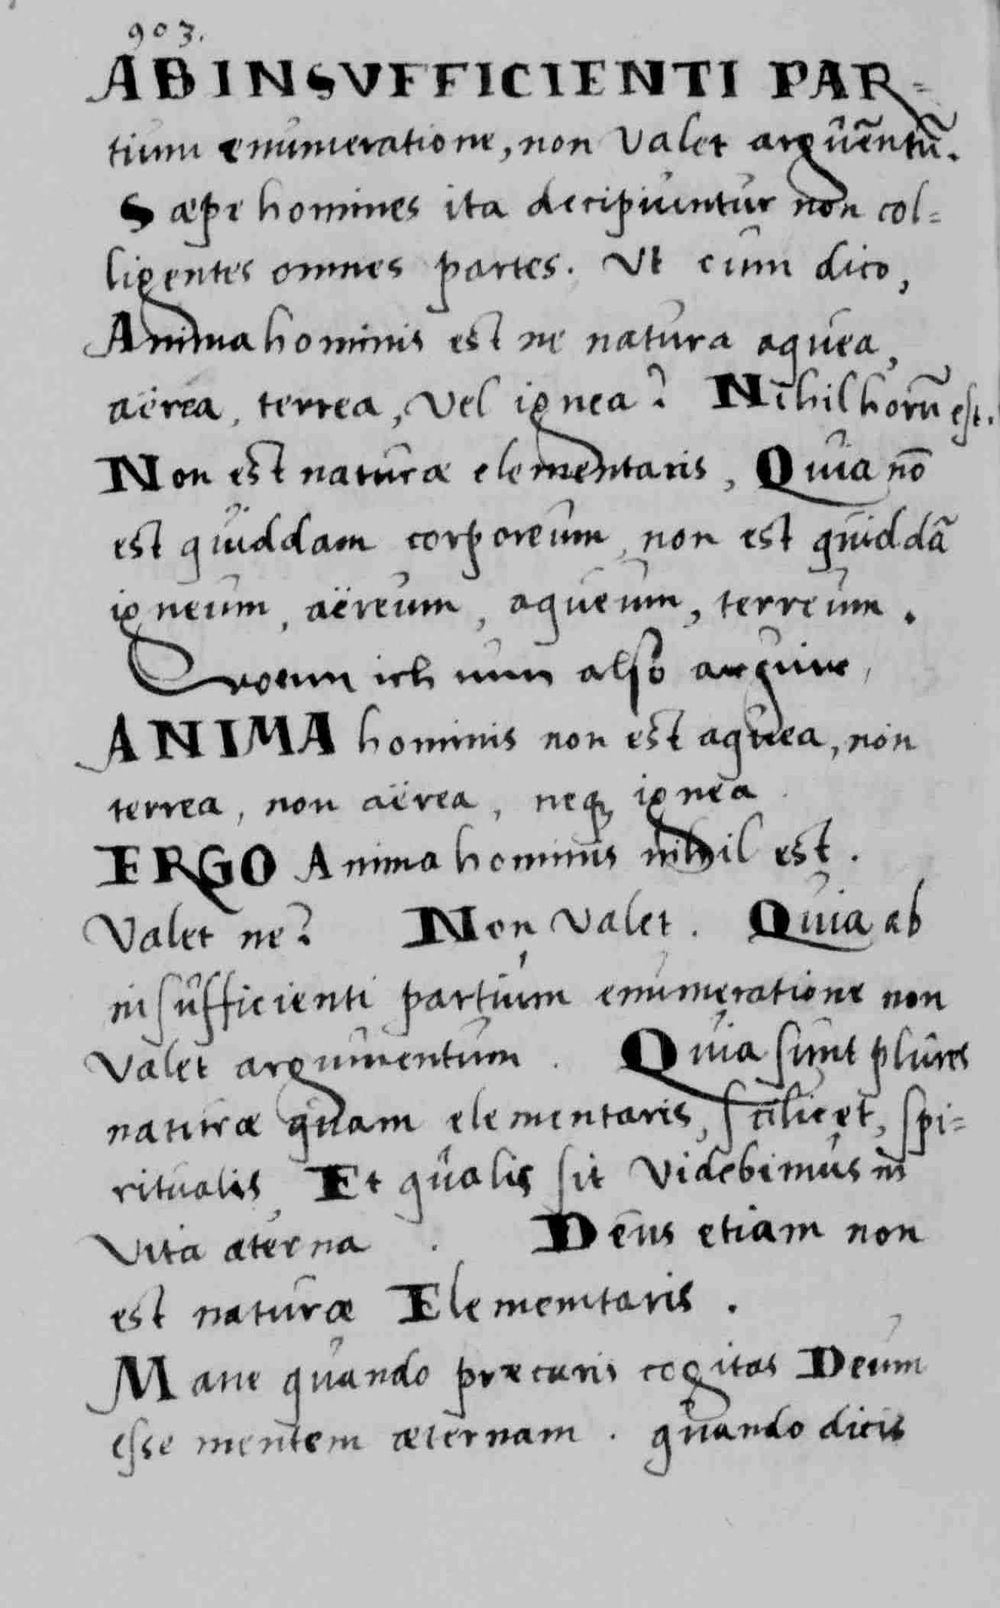 903.
AB INSVFFICIENTI PAR=
tium enumeratione, non valet argūentū.
Sæpe homines ita decipiuntur non col=
ligentes omnes partes. Ut cum dico,
Anima hominis est ne natura aquea,
aërea, terrea, vel ignea? Nihil horū est.
Non est naturæ elementaris, Quia nō
est quiddam corporeum, non est quiddā
igneum, aëreum, aqueum, terreum.
Wenn ich nun also arguire,
ANIMA hominis non est aquea, non
terrea, non aërea, neq; ignea
ERGO Anima hominis nihil est.
Valet ne? Non valet. Quia ab
insufficienti partium enumeratione non
valet argumentum. Quia sunt plures
naturæ quam elementaris, scilicet, spi=
ritualis, Et qualis sit videbimus in
vita æterna. Deus etiam non
est naturæ Elementaris.
Mane quando præcaris cogitas Deum
esse mentem æternam. quando dicis